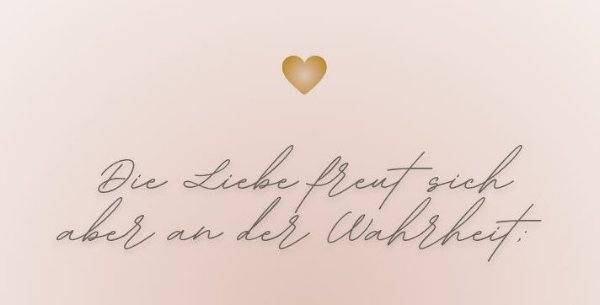 Die Liebe freut sich
aber an der Wahrheit;